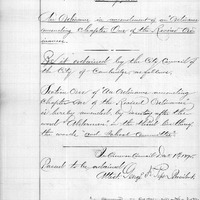 An Ordinance in amendment of an "Ordinance
amending Chapter One of the Revised Ordi-
nances
Be it ordained by the City Council of
the City of Cambridge, as follows.
Section One of An Ordinance amending
Chapter One of the Revised Ordinances
is hereby amended, by inserting after the
word "Aldermen" in the third line thereof
the words "and School Committee"
In Common Council
Passed to be ordained
Attest President